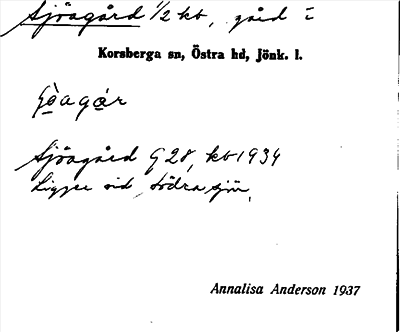 Sjöagård 1/2 kb, gård i
Korsberga sn, Östra hd, Jönk. l.
Sjöagård G28, kb 1934
Ligger vid Södra sjön.
Annalisa Anderson 1937